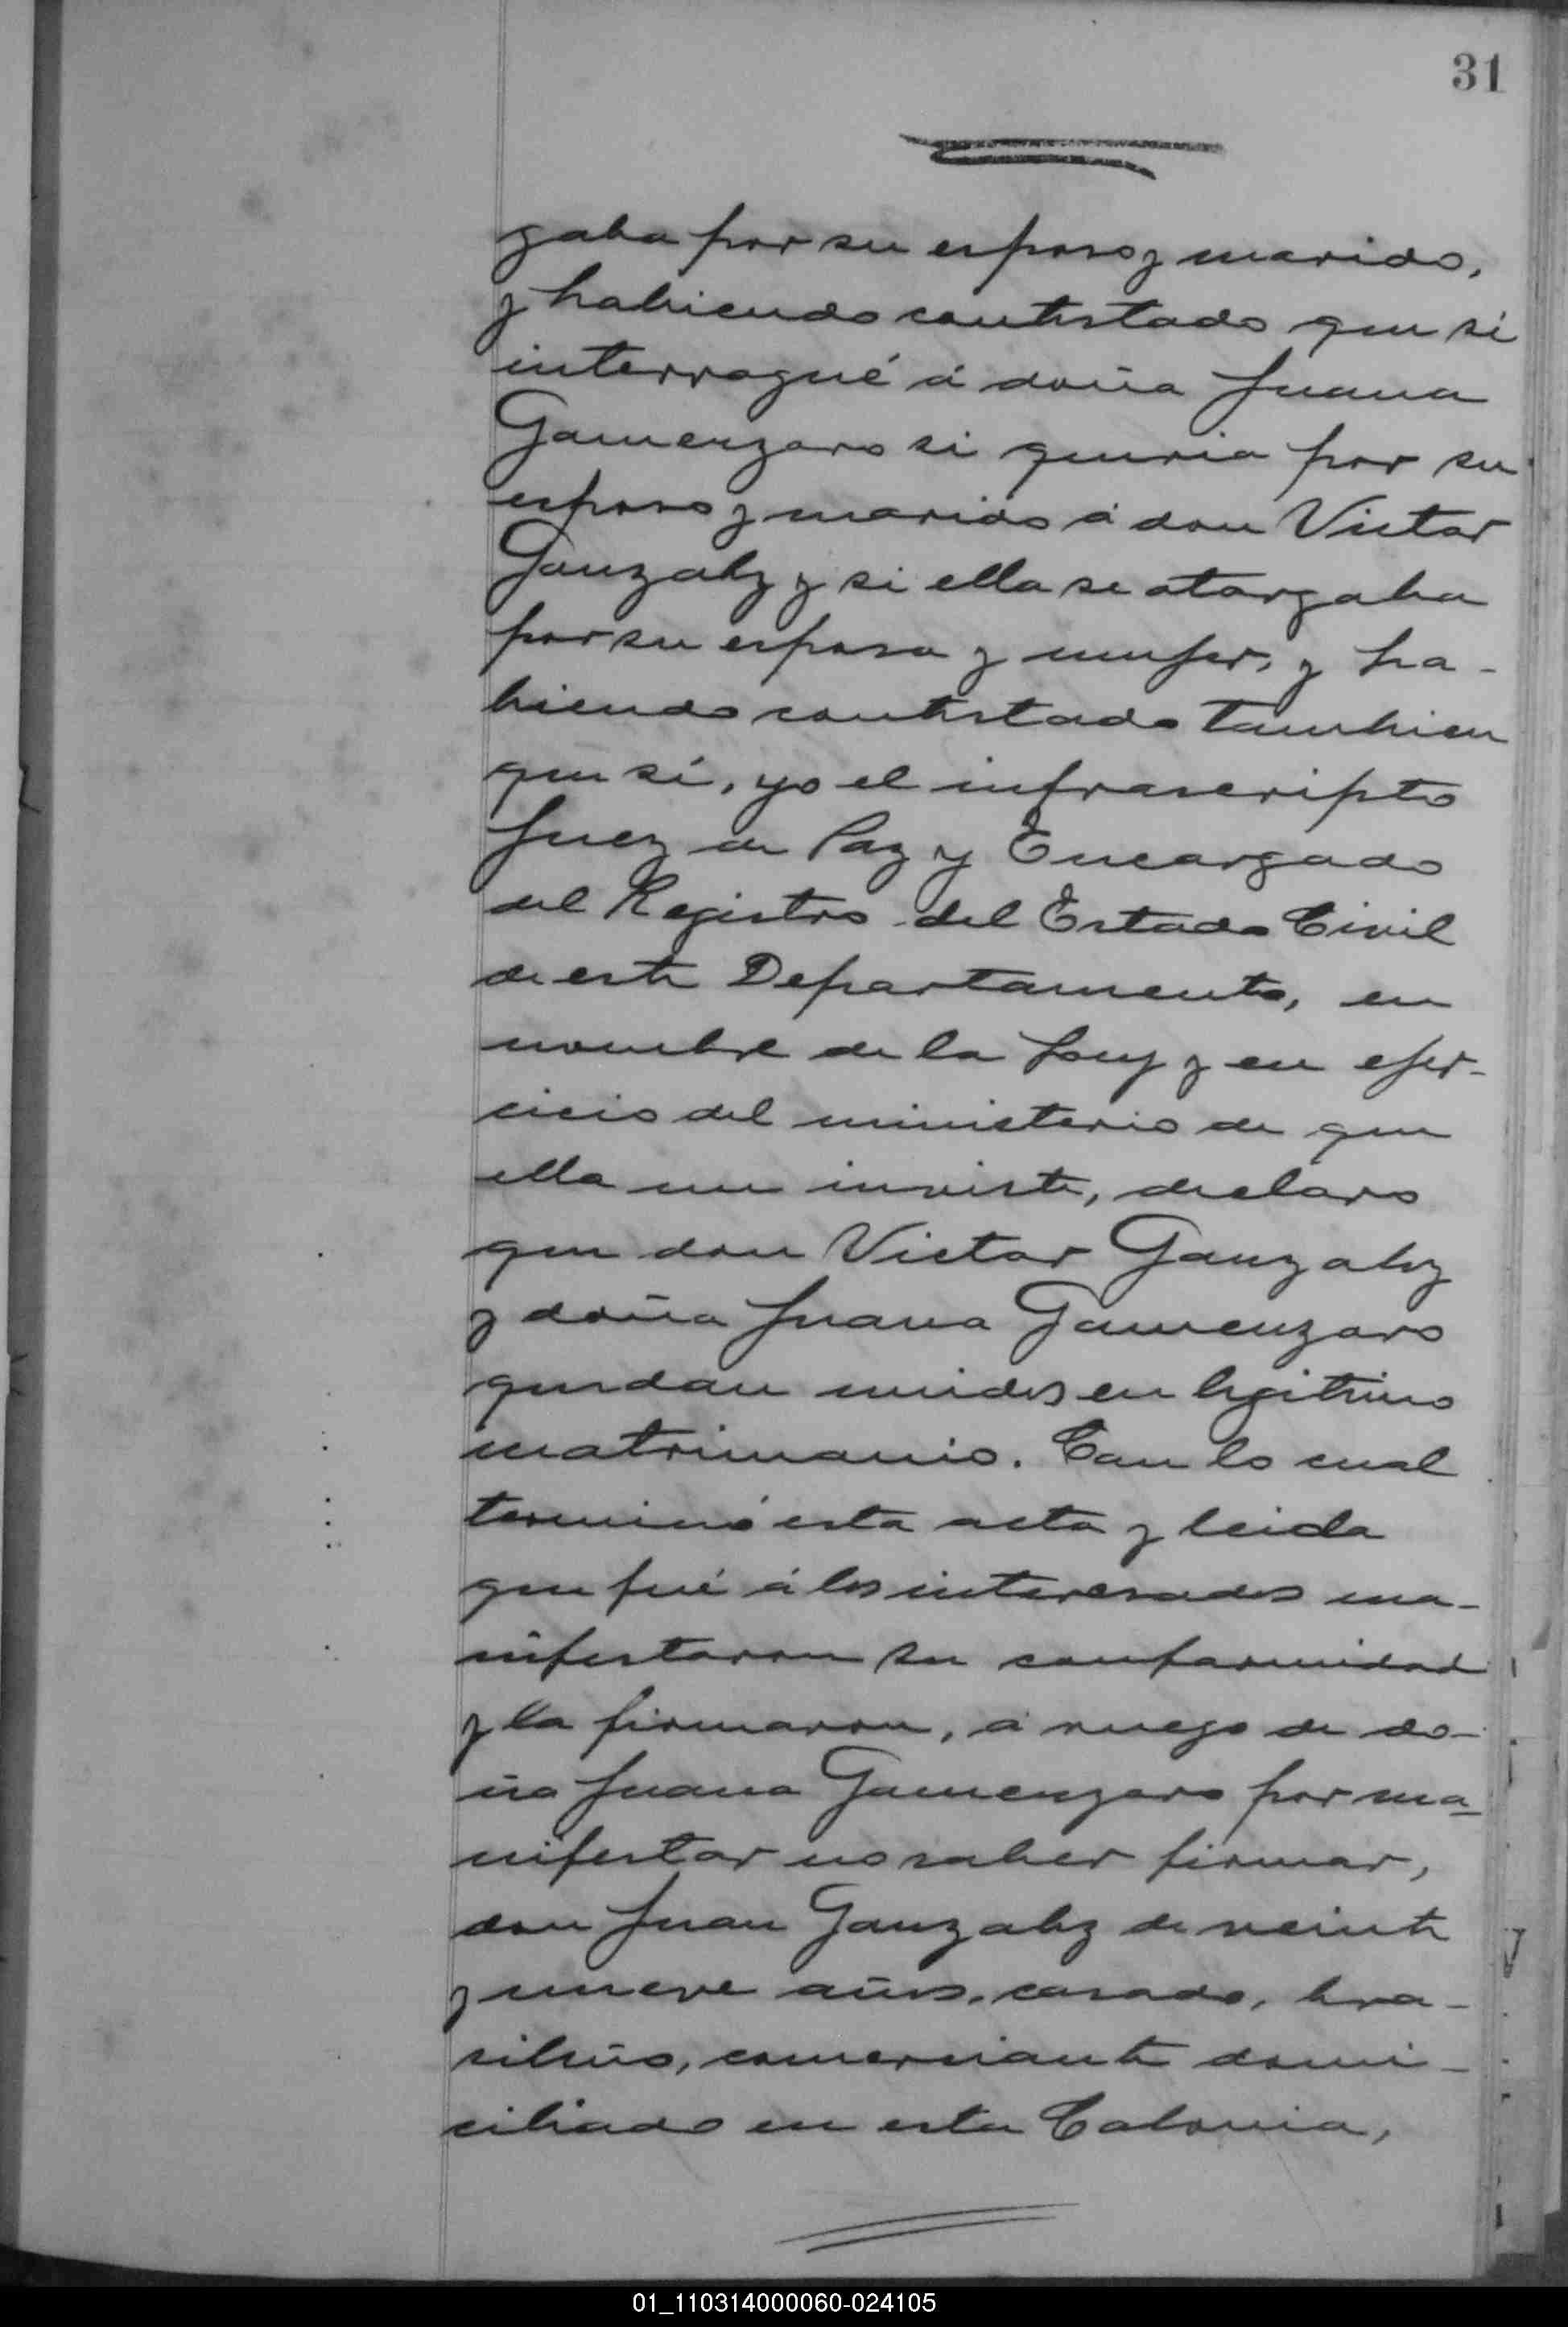 31
gaba por su esposo y marido,
y habiendo contestado que sí
interrogué á doña Juana
Gamenzaro si queria por su
esposo y marido á don Victor
Gonzalez y si ella se otorgaba
por su esposa y mujer, y ha-
biendo contestado tambien
que sí, yo el infrascripto
Juez de Paz y Encargado
del Registro del Estado Civil
de este Departamento, en
nombre de la Ley y en ejer-
cicio del ministerio de que
ella me inviste, declaro
que don Victor Gonzalez
y doña Juana Gamenzaro
quedan unidos en legitimo
matrimonio. Con lo cual
terminó esta acta y leida
que fué á los interesados ma-
nifestaron su conformidad
y la firmaron, á ruego de do-
ña Juana Gamenzaro por ma-
nifestar no saber firmar,
don Juan Gonzalez de veinte
y nueve años, casado, bra-
sileño, comerciante domi-
ciliado en esta Colonia,
01_110314000060-024105